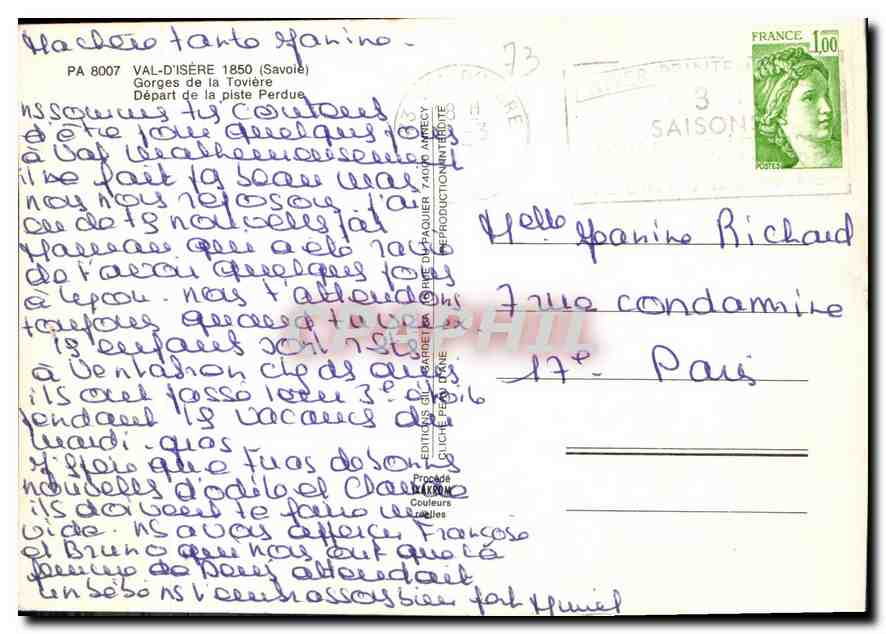 Ma chère tante Janine -
PA 8007 VAL-D'ISÈRE 1850 (Savoie)
Gorges de la Tovière
Départ de la piste Perdue
ns sommes ts contents
d'être pour quelques jours
à Val malheureusement
il ne fait ps beau mais
nous nous reposons j'ai
eu de ts nouvelles par
Maman qui a été ravie
de t'avoir quelques jours
à nous t'attendons
toujours quand tu veux.
ls enfants sont restés
à Ventatron chez ds amis
ils ont passé leur 3e étoile
pendant ls vacances du
mardi-gras
J'espère que tu as de bonnes
nouvelles d'odile et Claude
ils doivent te faire un
vide. ns avons aperçu Françoise
et Bruno qui nous ont que la
femme de Denis attendait
un bébé ns t'embrassons bien fort Muriel
EDITIONS GIL GARDET RUE DU PAQUIER 74000 ANNECY
CLICHE PEAU D'ANE REPRODUCTION INTERDITE
Procédé
DIAKROM
Couleurs
réelles
73
3
SAISONS
FRANCE
1,00
POSTES
CPAPHIL
Melle Janine Richard
7 rue condamine
17e - Paris